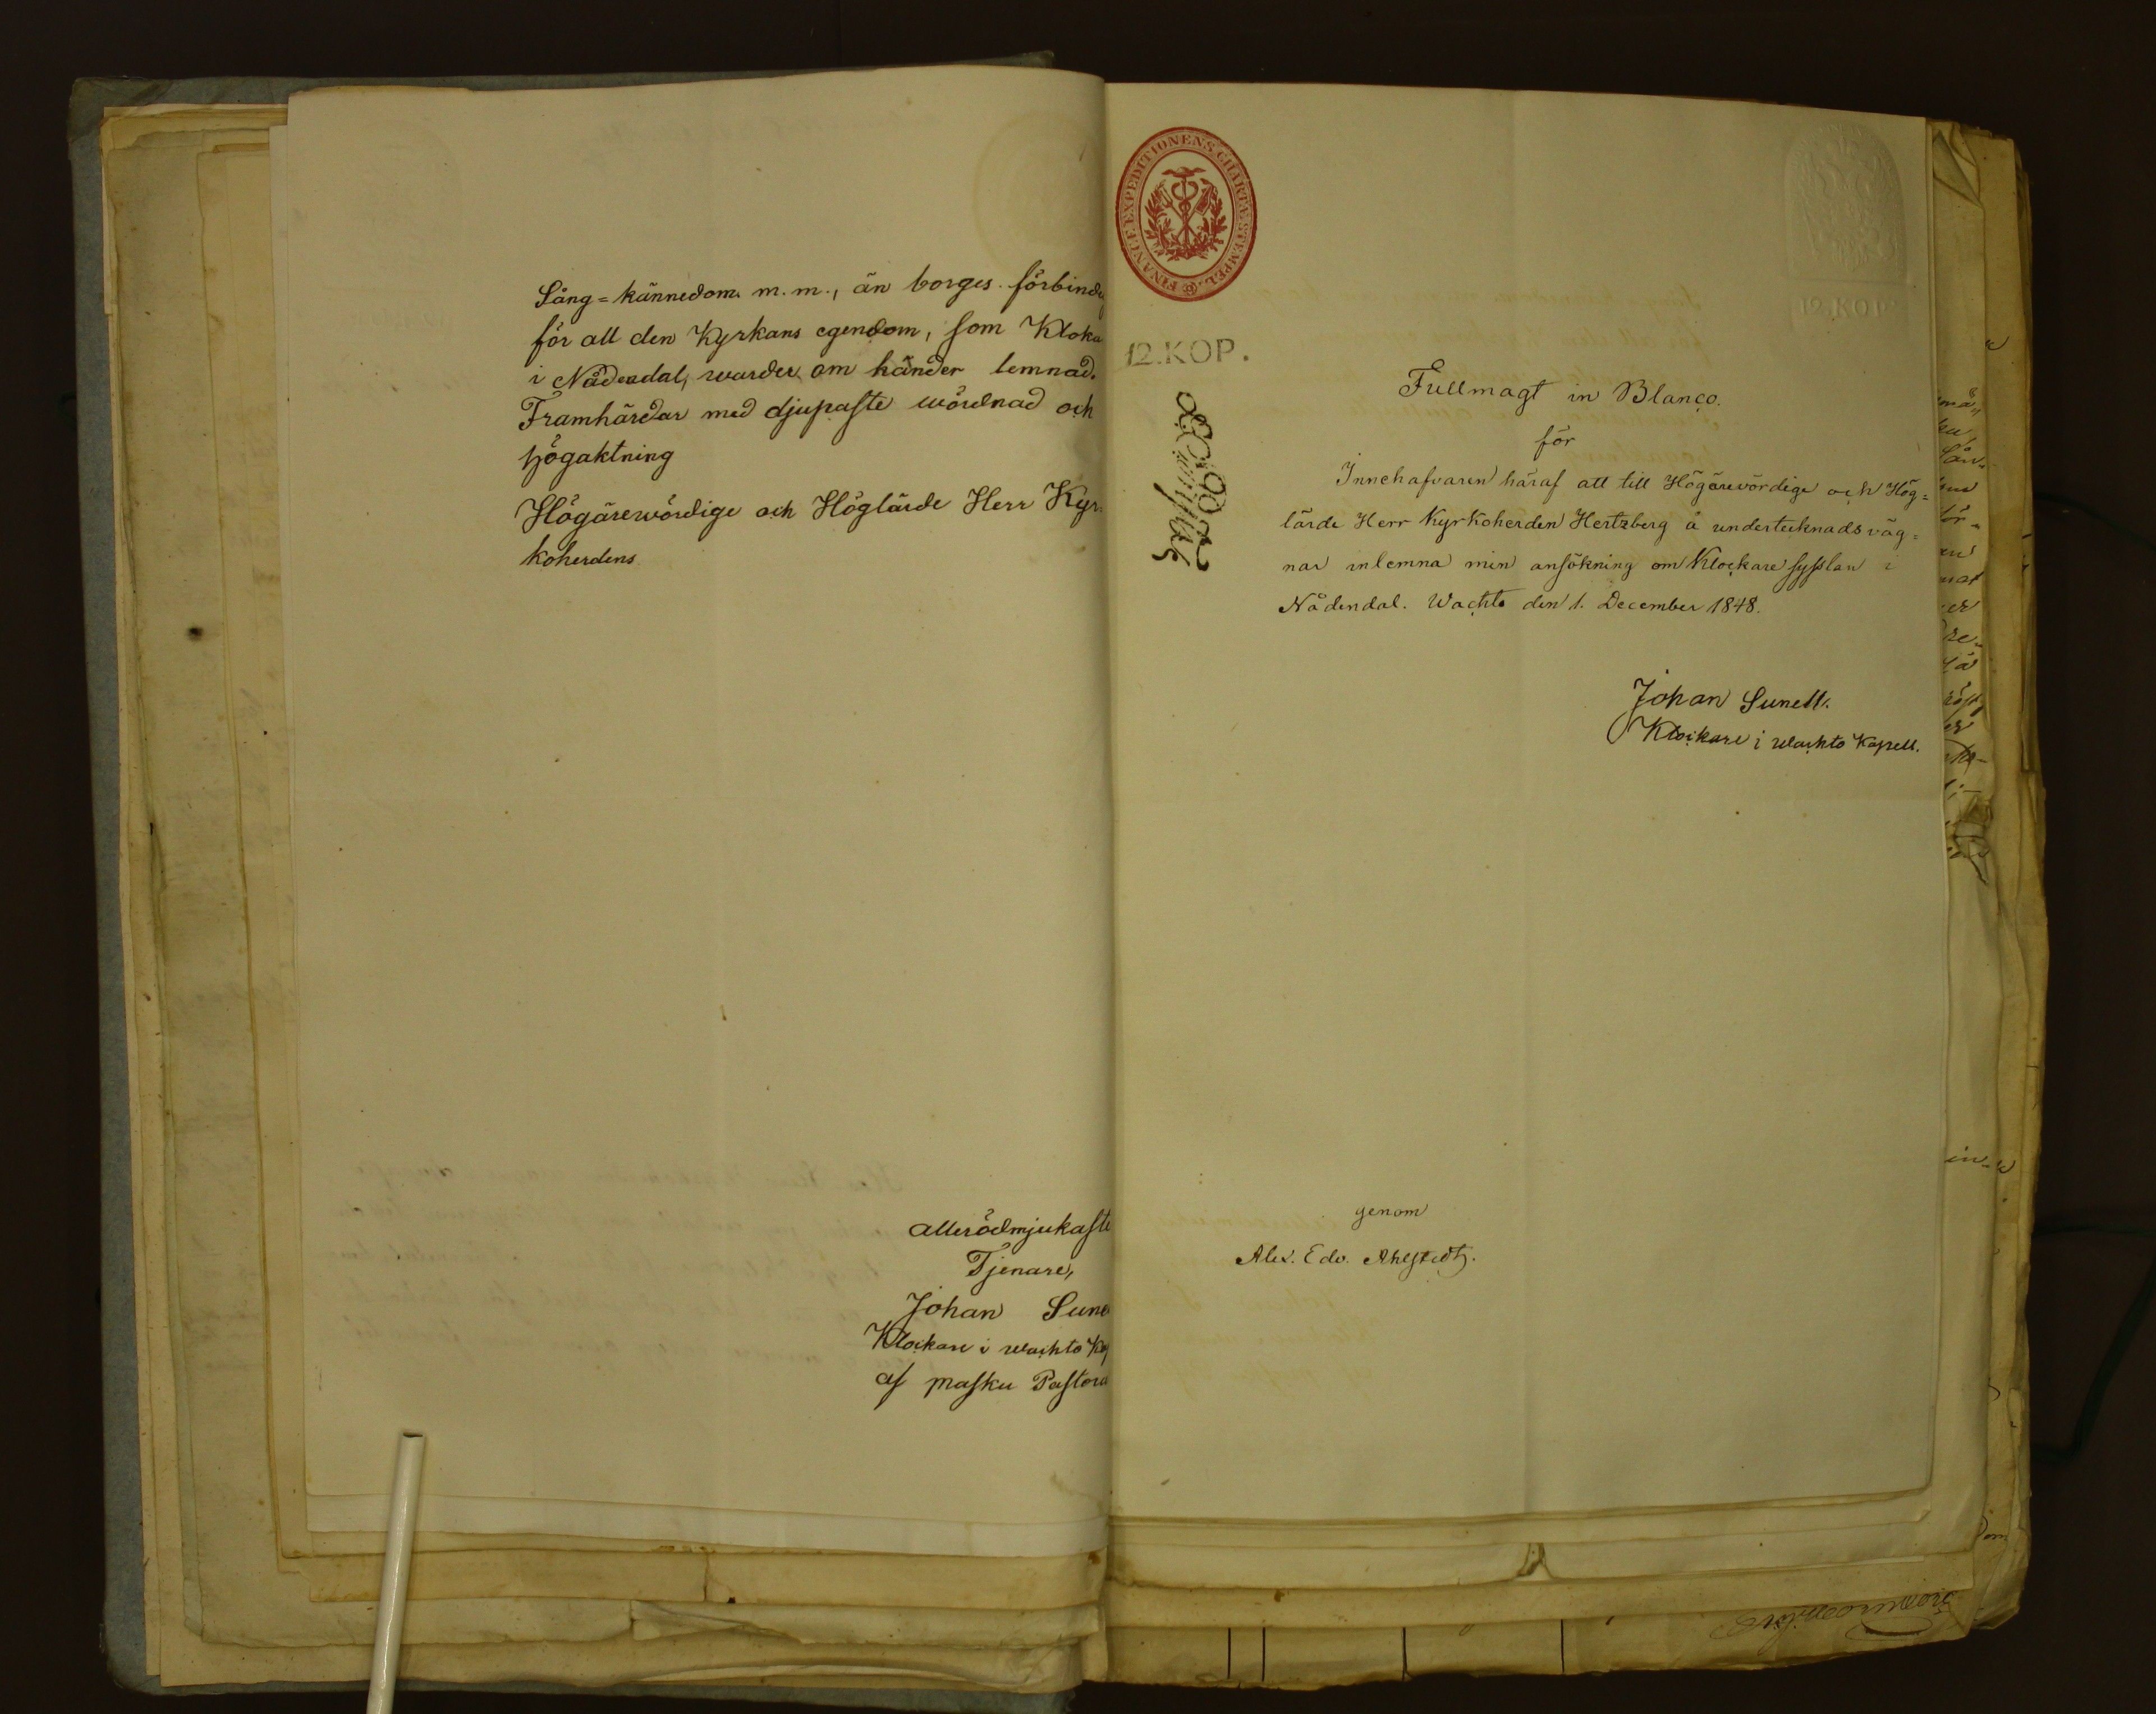 Sång=kännedom m.m., än borges förbinde
för all den Kyrkans egendom, som Kloka
i Nådendal, warder om händer lemnad.
Framhärdar med djupaste wördnad och
högaktning
Högärewördige och Höglärde Herr Kyr
koherdens
allerödmjukaste
Tjenare,
Johan Sune
Klockare i wachto Ka
af masku Pastora
FINANCE EXPEDITIONENS CHARTÆ STEMPEL
12.KOP.
12 KOP
Fullmagt in Blanco.
för
Innehafvaren häraf att till Högärevördige och Hög=
lärde Herr Kyrkoherden Hertzberg å undertecknads väg=
nar inlemna min ansökning om Klockare sysslan i
Nådendal. Wachto den 1. December 1848.
Johan Sunell.
Klockare i wachto Kapell.
genom
Alex. Edv. Ahlstedt.